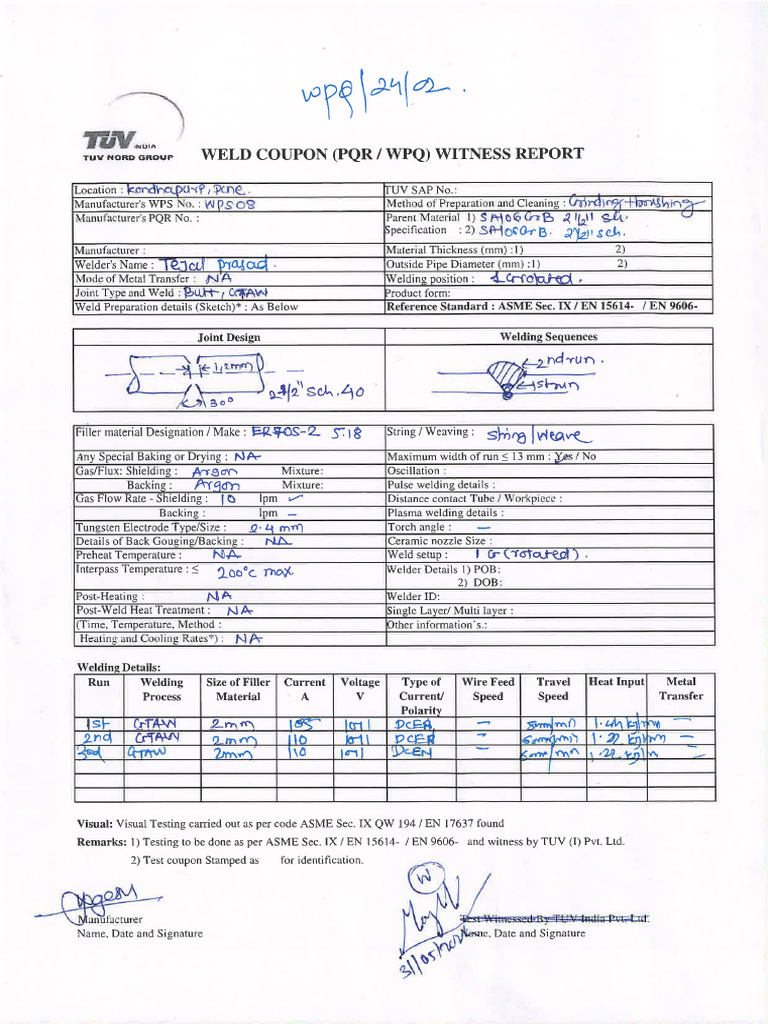 WPQ/24/02.
TÜV INDIA
TUV NORD GROUP
WELD COUPON (PQR / WPQ) WITNESS REPORT
Location : Kondhapurp, Pune.
TUV SAP No.:
Manufacturer's WPS No. : WPS08
Method of Preparation and Cleaning : Grinding + brushing
Manufacturer's PQR No. :
Parent Material 1) SA106GrB 2 1/2" sch.
Specification : 2) SA106GrB. 2 1/2" sch.
Manufacturer :
Material Thickness (mm) :1) 2)
Welder's Name : Tejal prasad.
Outside Pipe Diameter (mm) :1) 2)
Mode of Metal Transfer : NA
Welding position : 1G rotated.
Joint Type and Weld : Butt, GTAW
Product form:
Weld Preparation details (Sketch)* : As Below
Reference Standard : ASME Sec. IX / EN 15614- / EN 9606-
Joint Design
Welding Sequences
1.2mm
30°
2 1/2" Sch.40
2nd run.
1st run
Filler material Designation / Make : ER70S-2 5.18
String / Weaving : string/weave
Any Special Baking or Drying : NA
Maximum width of run ≤ 13 mm : Yes / No
Gas/Flux: Shielding : Argon Mixture:
Oscillation :
Backing : Argon Mixture:
Pulse welding details :
Gas Flow Rate - Shielding : 10 lpm ✓
Distance contact Tube / Workpiece :
Backing : lpm –
Plasma welding details :
Tungsten Electrode Type/Size : 2.4 mm
Torch angle : –
Details of Back Gouging/Backing : NA
Ceramic nozzle Size :
Preheat Temperature : NA
Weld setup : 1G (rotated).
Interpass Temperature : ≤ 200°c max
Welder Details 1) POB:
2) DOB:
Post-Heating : NA
Welder ID:
Post-Weld Heat Treatment : NA
Single Layer/ Multi layer :
(Time, Temperature, Method :
Other information's.:
Heating and Cooling Rates*) : NA
Welding Details:
Run Welding Process Size of Filler Material Current A Voltage V Type of Current/ Polarity Wire Feed Speed Travel Speed Heat Input Metal Transfer
1st GTAW 2mm 105 – –
2nd GTAW 2mm 110 – –
3rd GTAW 2mm 110 DCEN – –
Visual: Visual Testing carried out as per code ASME Sec. IX QW 194 / EN 17637 found
Remarks: 1) Testing to be done as per ASME Sec. IX / EN 15614- / EN 9606- and witness by TUV (I) Pvt. Ltd.
2) Test coupon Stamped as for identification.
W
Manufacturer
Test Witnessed By TUV India Pvt. Ltd.
Name, Date and Signature
Name, Date and Signature